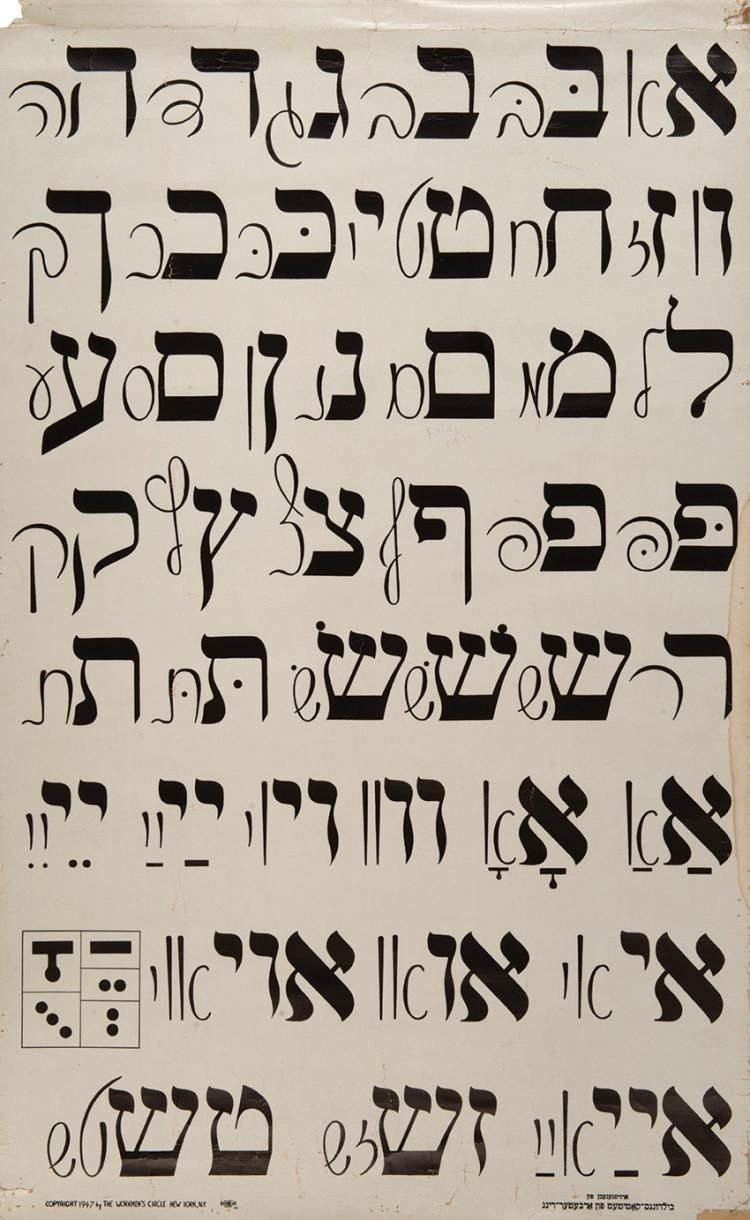 א א בּ בּ ב ב ג ג ד ד ה ה
ו ו ז ז ח ח ט ט י י כּ כּ כ כ ך ך
ל ל מ מ ם ם נ נ ן ן ס ס ע ע
FINAL MEM
פּ פּ פ פ ף ף צ צ ץ ץ ק ק
ר ר ש ש שׁ שׁ שׂ שׂ תּ תּ ת ת
אַ אַ אָ אָ וו וו וי וי ײַ ײַ ײֵ ײֵ
אי אי או או אוי אוי
אײַ אײַ זש זש טש טש
ארויסגעגעבן פון
בילדונגס-קאמיטעט פון ארבעטער-רינג
COPYRIGHT 1947 by THE WORKMEN'S CIRCLE NEW YORK, N.Y.